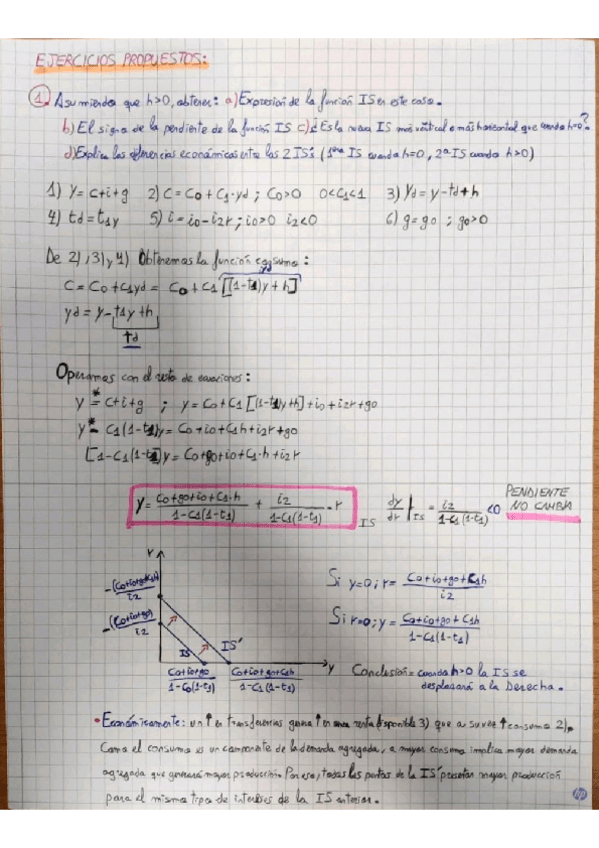 EJERCICIOS PROPUESTOS:
1. Asumiendo que h>0, obtener: a) Expresión de la función IS en este caso.
b) El signo de la pendiente de la función IS c) ¿Es la nueva IS más vertical o más horizontal que cuando h=0?
d) Explica las diferencias económicas entre las 2 IS's (1ª IS cuando h=0, 2ª IS cuando h>0)
1) y = c+i+g 2) C = C0 + C1·yd ; C0>0 0<C1<1 3) yd = y-td+h
4) td = t1y 5) i = i0-i2r ; i0>0 i2<0 6) g = g0 ; g0>0
De 2), 3) y 4) Obtenemos la función consumo:
yd
C = C0 + C1yd = C0 + C1 [(1-t1)y + h]
yd = y - t1y + h
td
Operamos con el resto de ecuaciones:
y* = c+i+g ; y = C0 + C1 [(1-t1)y+h] + i0 + i2r + g0
y* - C1(1-t1)y = C0 + i0 + C1h + i2r + g0
[1-C1(1-t1)]y = C0+g0+i0+C1·h + i2r
y = C0+g0+i0+C1·h / 1-C1(1-t1) + i2 / 1-C1(1-t1) · r IS dy/dr | IS = i2 / 1-C1(1-t1) <0 PENDIENTE NO CAMBIA
r
-(C0+i0+g0+C1h) / i2
-(C0+i0+g0) / i2
IS IS'
C0+i0+g0 / 1-C0(1-t1) C0+i0+g0+C1h / 1-C1(1-t1) y
Si y=0; r = C0+i0+g0+C1h / i2
Si r=0; y = C0+i0+g0+C1h / 1-C1(1-t1)
Conclusión = cuando h>0 la IS se
desplazará a la Derecha.
• Económicamente: un ↑ en transferencias genera ↑ en renta disponible 3) que a su vez ↑ consumo 2).
Como el consumo es un componente de la demanda agregada, a mayor consumo implica mayor demanda
agregada que generará mayor producción. Por eso, todos los puntos de la IS' presentan mayor producción
para el mismo tipo de intereses de la IS anterior.